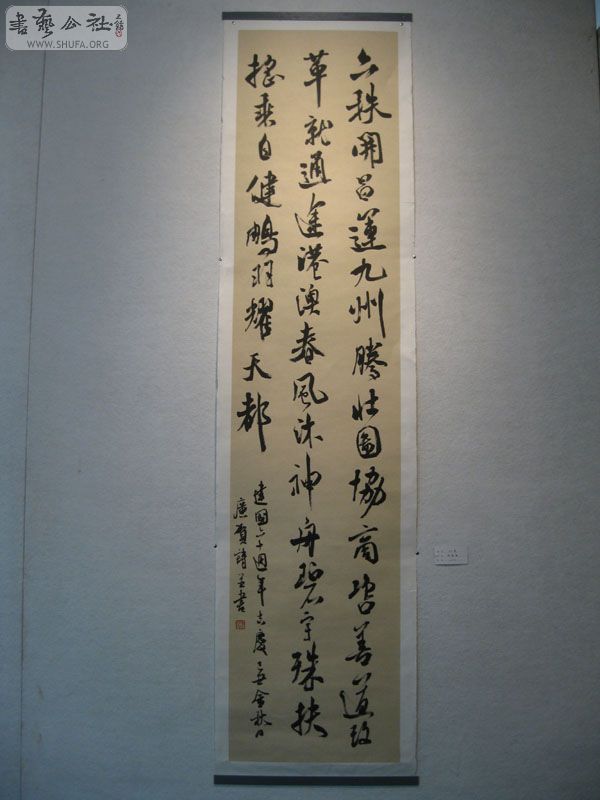 書藝公社
WWW.SHUFA.ORG
六秩開昌運九州騰壯圖協商咨善道改
革就通途港澳春風沐神舟碧宇殊扶
搖乘自健鵬羽耀天都
建國六十週年吉慶 金秋日
廣賢詩並書